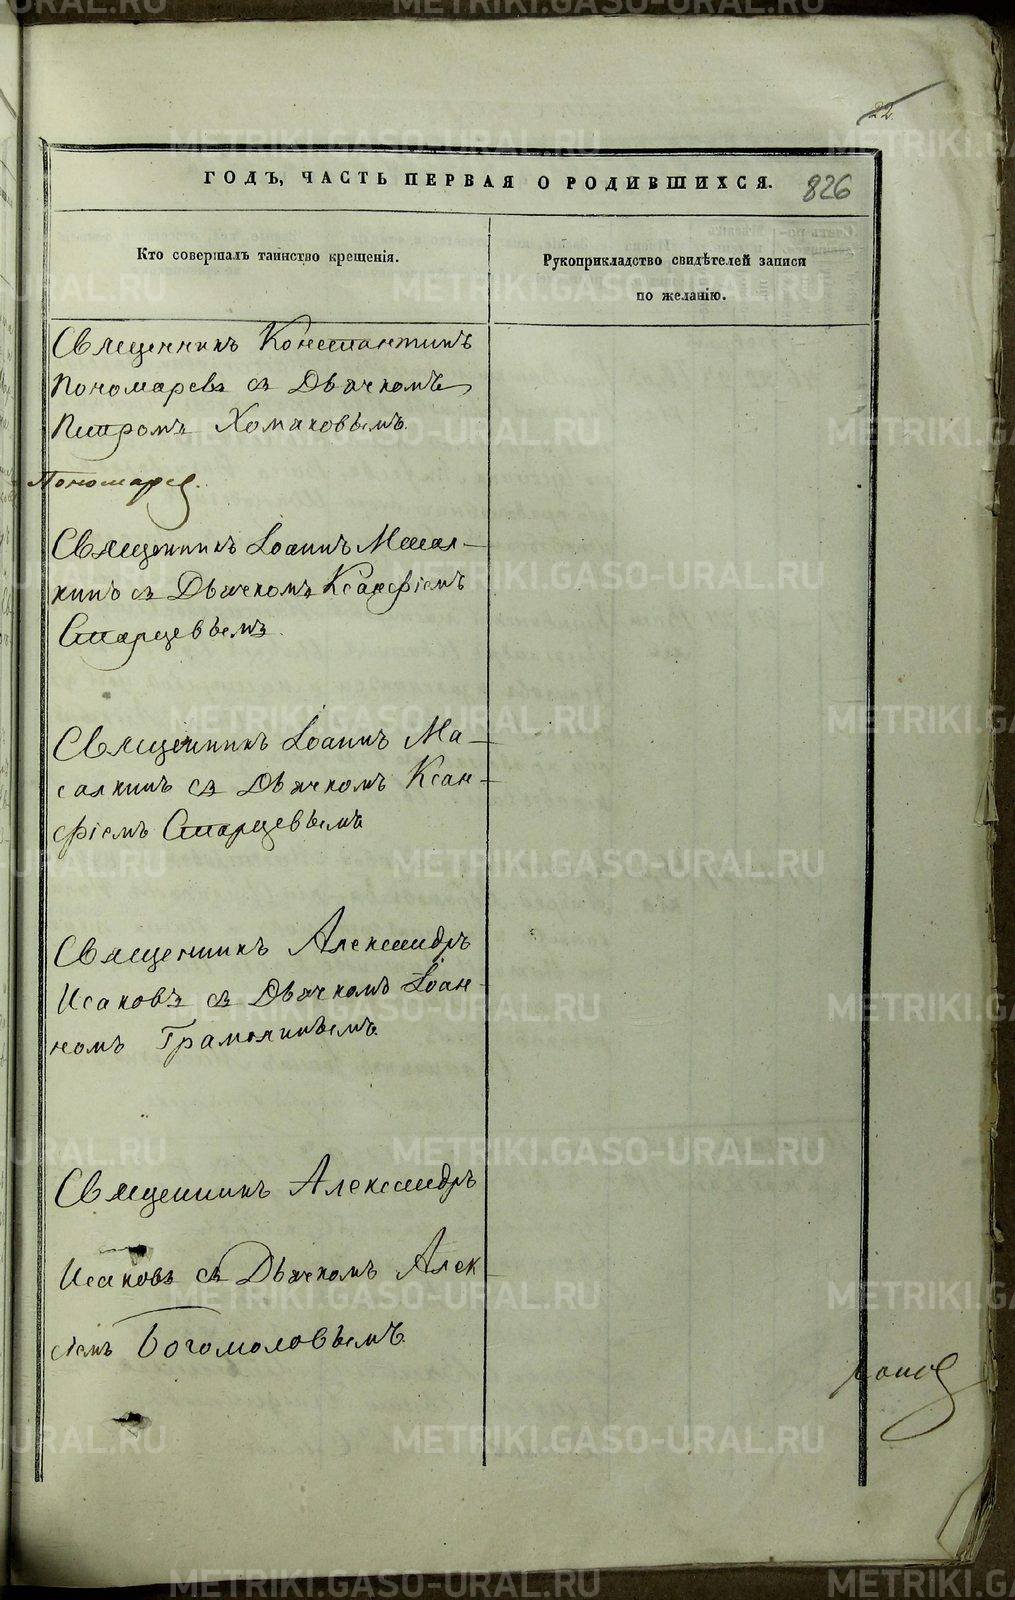 22
ГОДЪ, ЧАСТЬ ПЕРВАЯ О РОДИВШИХСЯ.
826
Кто совершалъ таинство крещенія.
Рукоприкладство свидѣтелей записи
по желанію.
Священникъ Константинъ
Пономаревъ съ Дьячкомъ
Петромъ Хомяковымъ.
Пономарев.
Священникъ Іоаннъ Масал-
кинъ съ Дьячкомъ Ксанфіемъ
Старцевымъ.
Священникъ Іоаннъ Ма-
салкинъ съ Дьячкомъ Ксан-
фіемъ Старцевымъ
Священникъ Александръ
Исаковъ съ Дьячкомъ Іоан-
номъ Грамолинымъ
Священникъ Александръ
Исаковъ съ Дьячкомъ Алек-
сіемъ Богомоловымъ
METRIKI.GASO-URAL.RU